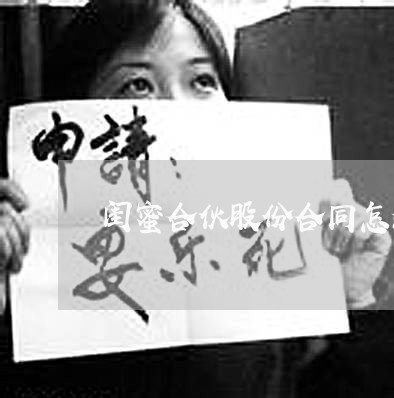 申請：
闺蜜合伙股份合同怎
要乐死